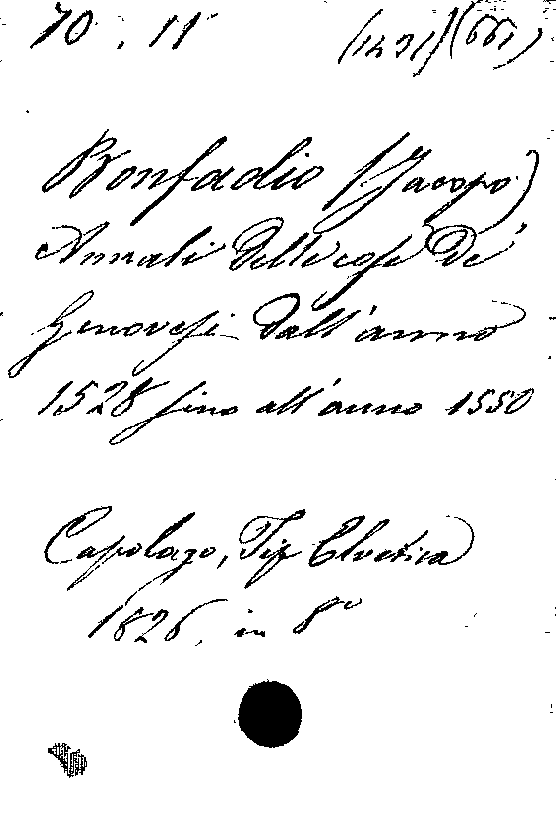 70.11 (1421) (661)
Bonfadio (Jacopo)
Annali delle cose de'
Genovesi dall'anno
1528 fino all'anno 1550
Capolago, Tip Elvetica
1826, in 8°